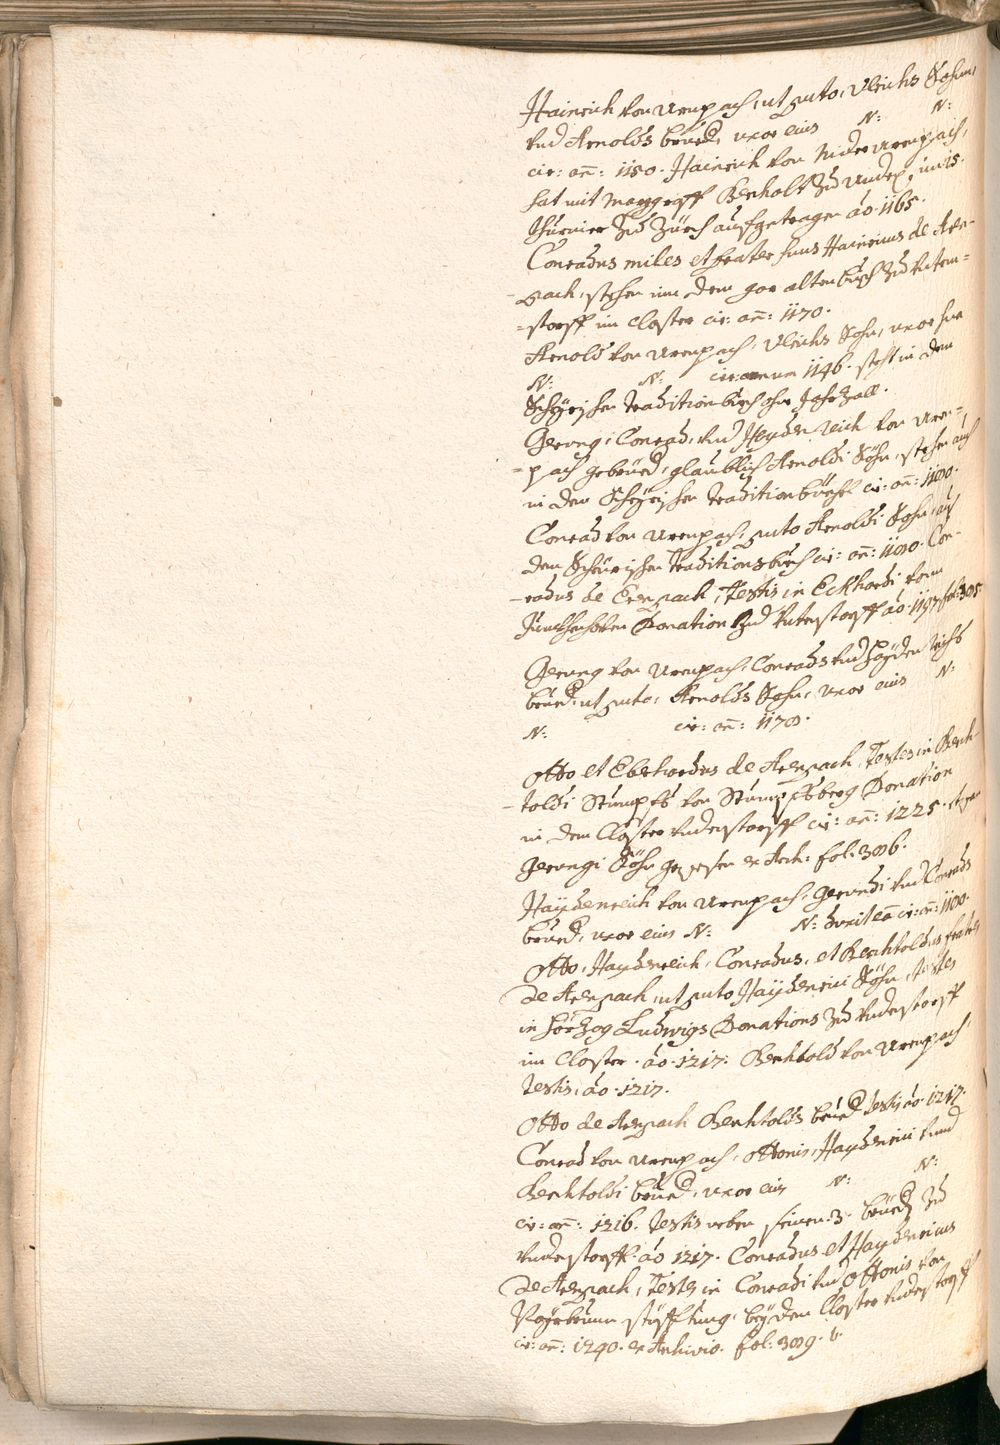 Hainrich von Urenpach, ut puto, Ulrichs Sohn,
und Arnolds brued, uxor eius N: N:
cir: an: 1150. Hainrich von Nider Urenpach,
hat mit Marggraff Berholt zu im 15.
Thurnier zu Zürch aufgetragen ao. 1165.
Conradus miles et frater suus Hainricus de Aren-
-pach, stehen inn dem gar alten buech zu Unten-
-storff im Closter cir: an: 1170.
Arnold von Urenpach, Ulrichs Sohn, uxor sua
N: N: cir: annum 1146. steht in dem
Scheyrischen traditionbuech ohne Jahrzall.
Gerung, Conrad, und Heydenreich von Uren-
-pach gebrued, glaublich Arnoldi Söhn, stehen auch
in dem Scheyrischen traditionbuech cir: an: 1180.
Conrad von Urenpach, puto Arnoldi Sohn, auß
dem Scheurischen Traditionsbuech cir: an: 1180. Con-
-radus de Erenpach, Testis in Eckhardi vonn
Donation zu Understorff ao. 1197. fol: 305.
Gerung von Urenpach, Conrads und Hayden reichs
brued, ut puto, Arnolds Sohn, uxor eius N:
N: cir: an: 1170.
Otto et Eberhardus de Arenpach, Testes in Berch-
-toldi Stumpfs von Stumpfsberg Donation
in dem Closter Understorff cir: an: 1225.
Gerungi Söhn gewesen ex Arch: fol: 306.
Haydenreich von Urenpach, Gerundi und Conrads
brued, uxor eius N: N: duxit ea cir: an: 1180.
Otto, Haydenreich, Conradus, et Berchtoldus fratres
de Arenpach, ut puto Haydenrici Söhn, testes
in Hörzog Ludwigs Donations zu Understorff
im Closter. ao. 1217. Berchtold von Urenpach,
Testis, ao. 1217.
Otto de Arenpach Berchtolds brued testis ao. 1217.
Conrad von Urenpach, Ottonis, Haydenrici unnd
Berchtoldi brued, uxor eius N: N:
cir: an: 1216. testis neben seinen 3. brued zu
Understorff. ao 1217. Conradus et Haydenricus
de Arenpach, Testes in Conradi und Ottonis von
stifftung, bey dem Closter Understorff
cir: an: 1240. ex Archivio. fol: 309. v.